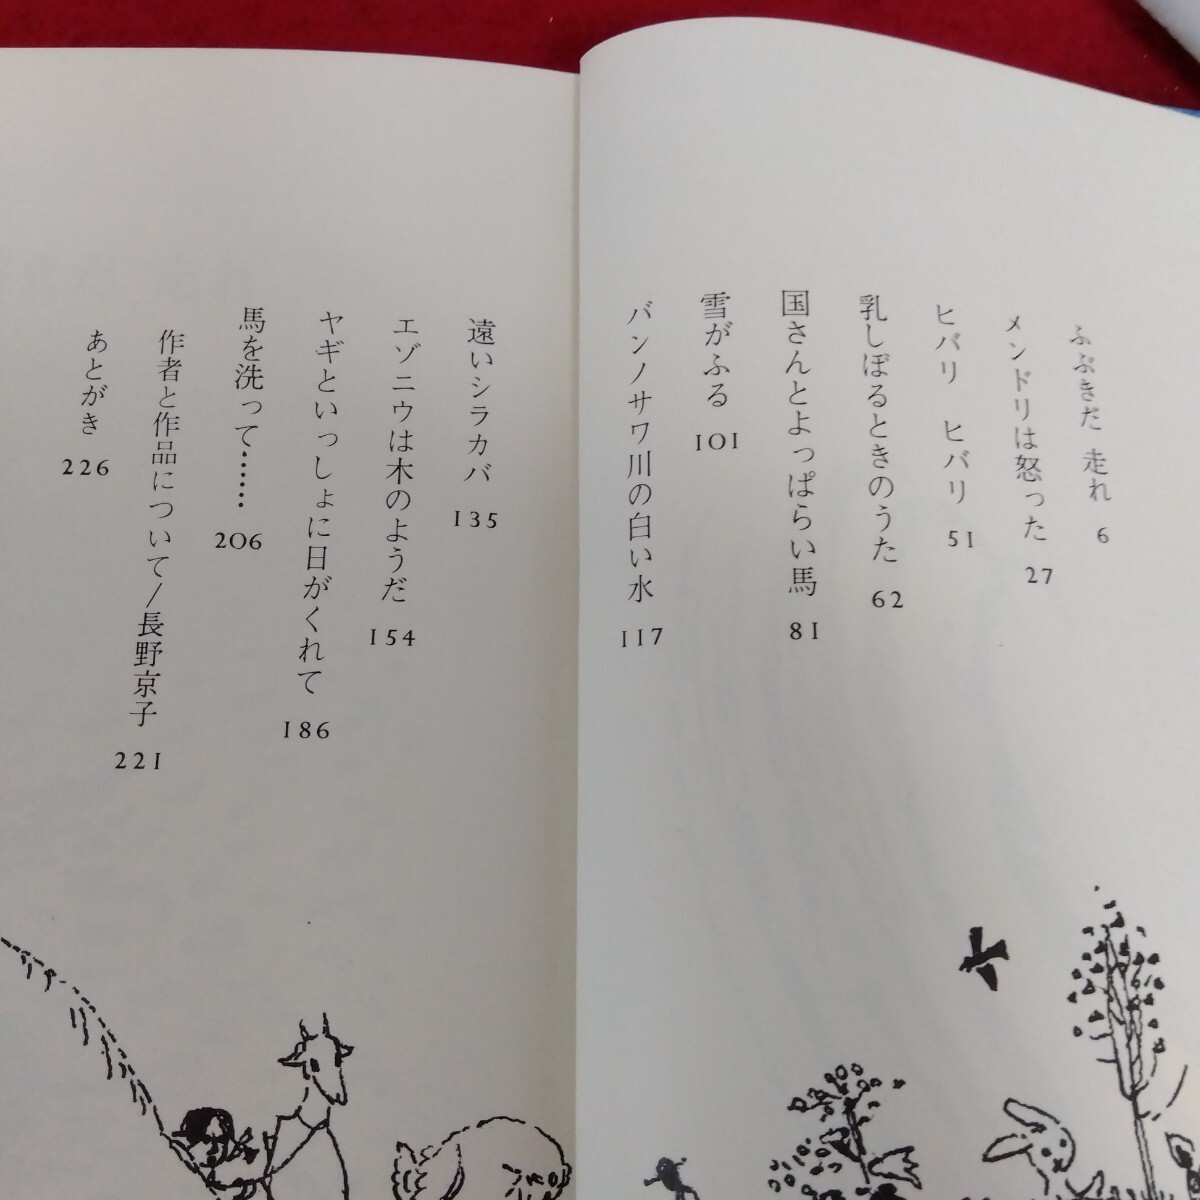 ふぶきだ 走れ 6
メンドリは怒った 27
ヒバリ ヒバリ 51
乳しぼるときのうた 62
国さんとよっぱらい馬 81
雪がふる 101
バンノサワ川の白い水 117
遠いシラカバ 135
エゾニウは木のようだ 154
ヤギといっしょに日がくれて 186
馬を洗って…… 206
作者と作品について/長野京子 221
あとがき 226